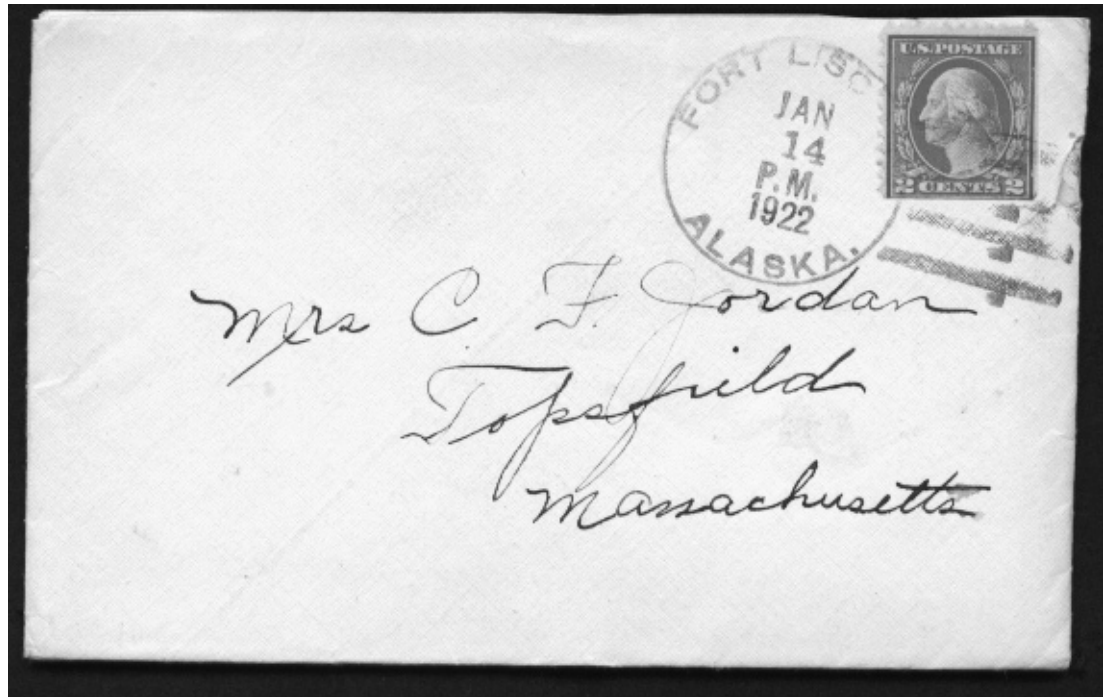 FORT LISC
JAN
14
P.M.
1922
ALASKA.
U.S. POSTAGE
2 CENTS 2
Mrs C. F. Jordan
Topsfield
Massachusetts